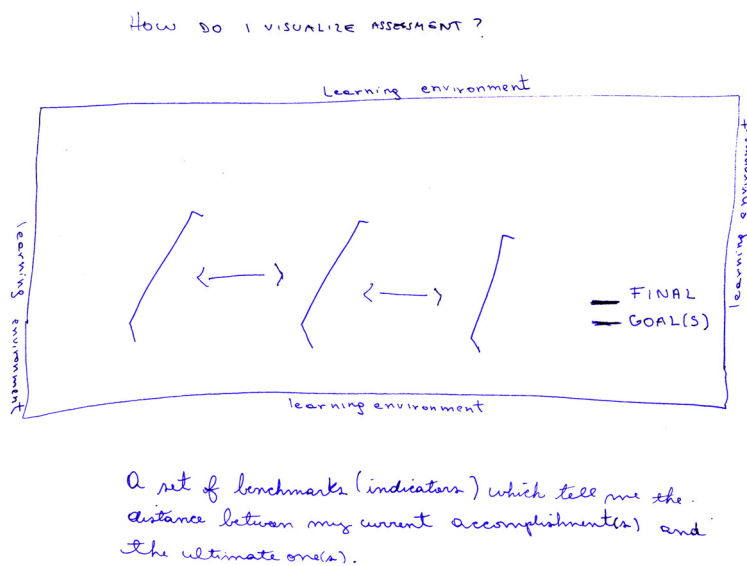 HOW DO I VISUALIZE ASSESSMENT?
Learning environment
learning environment
learning environment
FINAL
GOAL(S)
learning environment
A set of benchmarks (indicators) which tell me the
distance between my current accomplishment(s) and
the ultimate one(s).